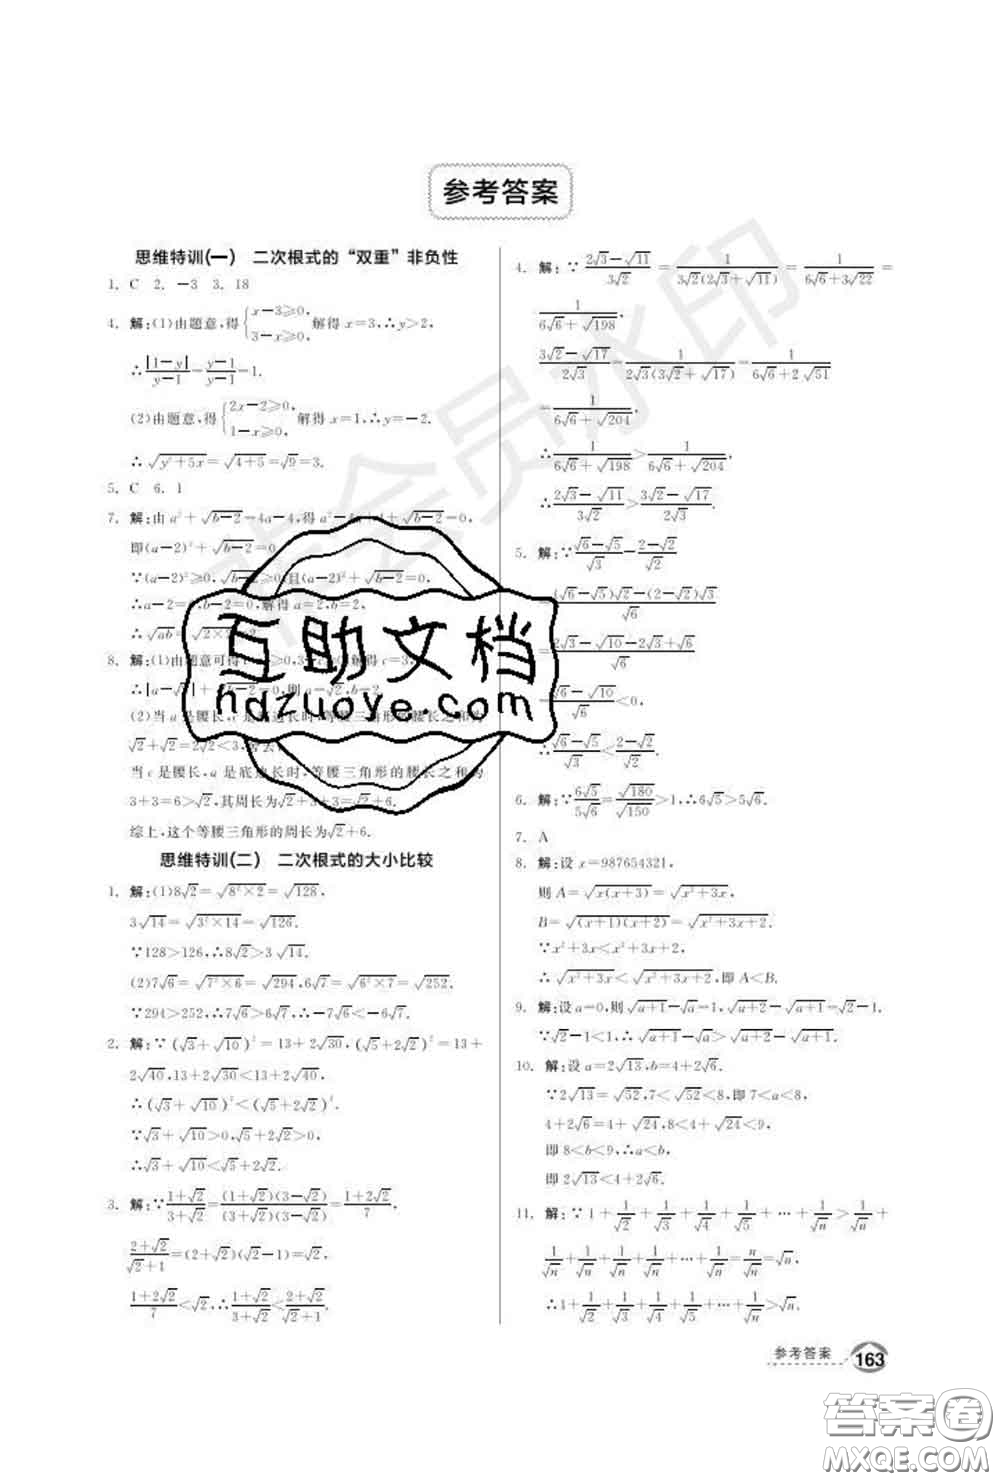 参考答案
思维特训(一) 二次根式的“双重”非负性
1. C 2. -3 3. 18
4. 解:(1)由题意,得{x-3≥0, 3-x≥0, 解得 x=3,∴y>2,
∴|1-y|/(y-1)=(y-1)/(y-1)=1.
(2)由题意,得{2x-2≥0, 1-x≥0, 解得 x=1,∴y=-2.
∴√(y²+5x)=√(4+5)=√9=3.
5. C 6. 1
7. 解:由 a²+√(b-2)=4a-4,得 a²-4a+4+√(b-2)=0,
即(a-2)²+√(b-2)=0.
∵(a-2)²≥0,√(b-2)≥0,且(a-2)²+√(b-2)=0,
∴a-2=0,b-2=0,解得 a=2,b=2,
∴√(ab)=√(2×2)
8. 解:(1)由题意可得 ≥0,3- 解得 c=3,
∴|a-√2|+ =0,则 a=√2,b=
(2)当 a 是腰长,c 是底边长时,等腰三角形的腰长之和为
√2+√2=2√2<3,舍去
当 c 是腰长,a 是底边长时,等腰三角形的腰长之和为
3+3=6>√2,其周长为√2+3+3=√2+6.
综上,这个等腰三角形的周长为√2+6.
思维特训(二) 二次根式的大小比较
1. 解:(1)8√2=√(8²×2)=√128,
3√14=√(3²×14)=√126.
∵128>126,∴8√2>3√14.
(2)7√6=√(7²×6)=√294,6√7=√(6²×7)=√252.
∵294>252,∴7√6>6√7,∴-7√6<-6√7.
2. 解:∵(√3+√10)²=13+2√30,(√5+2√2)²=13+
2√40,13+2√30<13+2√40,
∴(√3+√10)²<(√5+2√2)².
∵√3+√10>0,√5+2√2>0,
∴√3+√10<√5+2√2.
3. 解:∵(1+√2)/(3+√2)=(1+√2)(3-√2)/(3+√2)(3-√2)=(1+2√2)/7,
(2+√2)/(√2+1)=(2+√2)(√2-1)=√2,
(1+2√2)/7<√2,∴(1+√2)/(3+√2)<(2+√2)/(√2+1).
4. 解:∵(2√3-√11)/(3√2)=1/(3√2(2√3+√11))=1/(6√6+3√22)=
1/(6√6+√198),
(3√2-√17)/(2√3)=1/(2√3(3√2+√17))=1/(6√6+2√51)
=1/(6√6+√204),
∴1/(6√6+√198)>1/(6√6+√204),
∴(2√3-√11)/(3√2)>(3√2-√17)/(2√3).
5. 解:∵(√6-√5)/√3-(2-√2)/√2
=(√2(√6-√5)-(2-√2)√3)/√6
=(2√3-√10-2√3+√6)/√6
=(√6-√10)/√6<0,
∴(√6-√5)/√3<(2-√2)/√2.
6. 解:∵6√5/5√6=√180/√150>1,∴6√5>5√6.
7. A
8. 解:设 x=987654321,
则 A=√(x(x+3))=√(x²+3x),
B=√((x+1)(x+2))=√(x²+3x+2).
∵x²+3x<x²+3x+2,
∴√(x²+3x)<√(x²+3x+2),即 A<B.
9. 解:设 a=0,则√(a+1)-√a=1,√(a+2)-√(a+1)=√2-1.
∵√2-1<1,∴√(a+1)-√a>√(a+2)-√(a+1).
10. 解:设 a=2√13,b=4+2√6.
∵2√13=√52,7<√52<8,即 7<a<8,
4+2√6=4+√24,8<4+√24<9,
即 8<b<9,∴a<b,
即 2√13<4+2√6.
11. 解:∵1+1/√2+1/√3+1/√4+1/√5+…+1/√n>1/√n+
1/√n+1/√n+1/√n+1/√n+…+1/√n=n/√n=√n,
∴1+1/√2+1/√3+1/√4+1/√5+…+1/√n>√n.
参考答案 163
非会员水印
互助文档
hdzuoye.com
答案圈
MXQE.COM